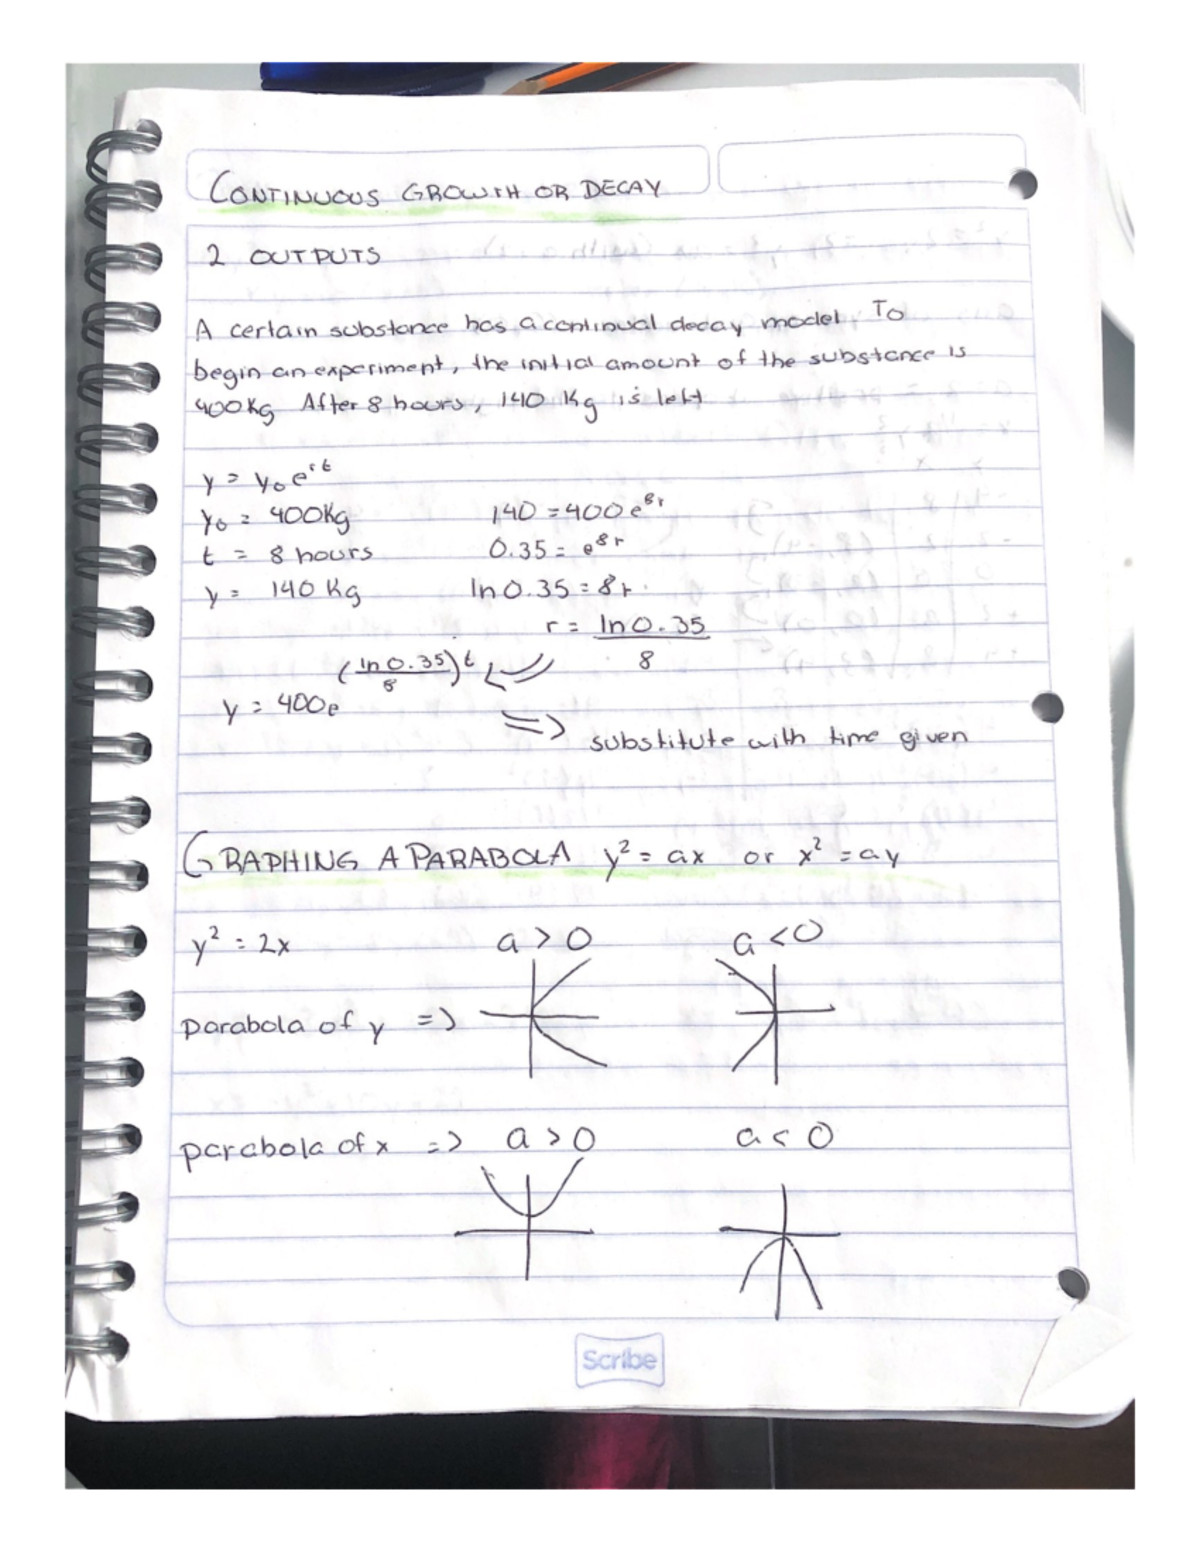 CONTINUOUS GROWTH OR DECAY
2 OUTPUTS
A certain substance has a continual decay model. To
begin an experiment, the initial amount of the substance is
400kg. After 8 hours, 140 Kg is left
y = y₀e^rt
y₀ = 400Kg 140 = 400e^8r
t = 8 hours 0.35 = e^8r
y = 140 Kg ln 0.35 = 8r
r = ln 0.35 / 8
y = 400e^(ln 0.35/8)t
=> substitute with time given
GRAPHING A PARABOLA y² = ax or x² = ay
y² = 2x a > 0 a < 0
parabola of y =>
parabola of x => a > 0 a < 0
Scribe